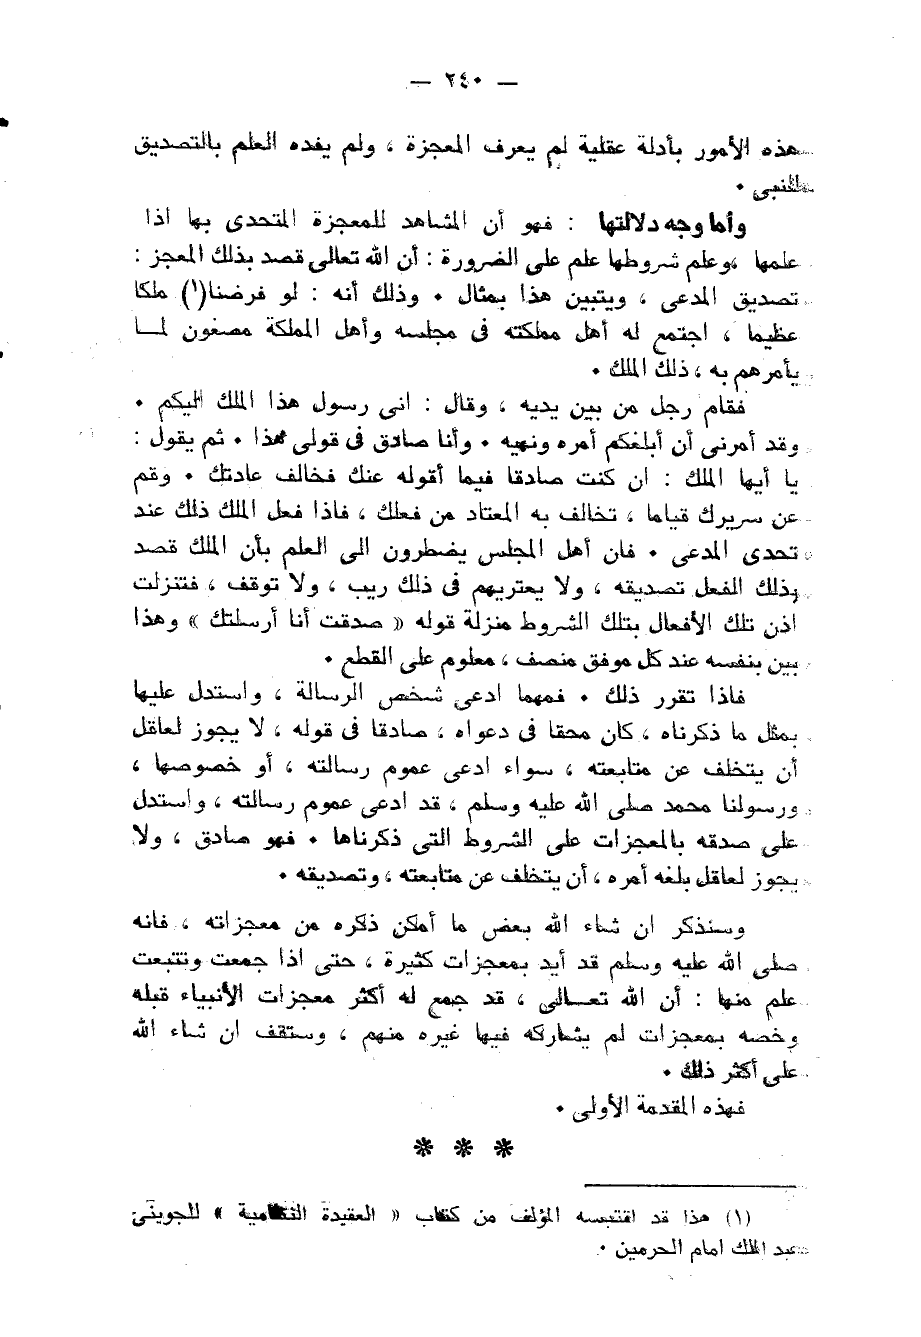 — ٢٤٠ —
هذه الأمور بأدلة عقلية لم يعرف المعجزة ، ولم يفده العلم بالتصديق
للنبى ٠
وأما وجه دلالتها : فهو أن المشاهد للمعجزة المتحدى بها اذا
علمها ،وعلم شروطها علم على الضرورة : أن الله تعالى قصد بذلك المعجز :
تصديق المدعى ، ويتبين هذا بمثال ٠ وذلك أنه : لو فرضنا(١) ملكا
عظيما ، اجتمع له أهل مملكته فى مجلسه وأهل المملكة مصغون لمـا
يأمرهم به ، ذلك الملك ٠
فقام رجل من بين يديه ، وقال : انى رسول هذا الملك اليكم ٠
وقد أمرنى أن أبلغكم أمره ونهيه ٠ وأنا صادق فى قولى هذا ٠ ثم يقول :
يا أيها الملك : ان كنت صادقا فيما أقوله عنك فخالف عادتك ٠ وقم
عن سريرك قياما ، تخالف به المعتاد من فعلك ، فاذا فعل الملك ذلك عند
تحدى المدعى ٠ فان أهل المجلس يضطرون الى العلم بأن الملك قصد
بذلك الفعل تصديقه ، ولا يعتريهم فى ذلك ريب ، ولا توقف ، فتتزلت
اذن تلك الأفعال بتلك الشروط منزلة قوله « صدقت أنا أرسلتك » وهذا
بين بنفسه عند كل موفق منصف ، معلوم على القطع ٠
فاذا تقرر ذلك ٠ فمهما ادعى شخص الرسالة ، واستدل عليها
بمثل ما ذكرناه ، كان محقا فى دعواه ، صادقا فى قوله ، لا يجوز لعاقل
أن يتخلف عن متابعته ، سواء ادعى عموم رسالته ، أو خصوصها ،
ورسولنا محمد صلى الله عليه وسلم ، قد ادعى عموم رسالته ، واستدل
على صدقه بالمعجزات على الشروط التى ذكرناها ٠ فهو صادق ، ولا
يجوز لعاقل بلغه أمره ، أن يتخلف عن متابعته ، وتصديقه ٠
وسنذكر ان شاء الله بعض ما أمكن ذكره من معجزاته ، فانه
صلى الله عليه وسلم قد أيد بمعجزات كثيرة ، حتى اذا جمعت وتتبعت
علم منها : أن الله تعـالى ، قد جمع له أكثر معجزات الأنبياء قبله
وخصه بمعجزات لم يشاركه فيها غيره منهم ، وستقف ان شاء الله
على أكثر ذلك ٠
فهذه المقدمة الأولى ٠
* * *
(١) هذا قد اقتبسه المؤلف من كتاب « العقيدة النظامية » للجوينى
عبد الملك امام الحرمين ٠